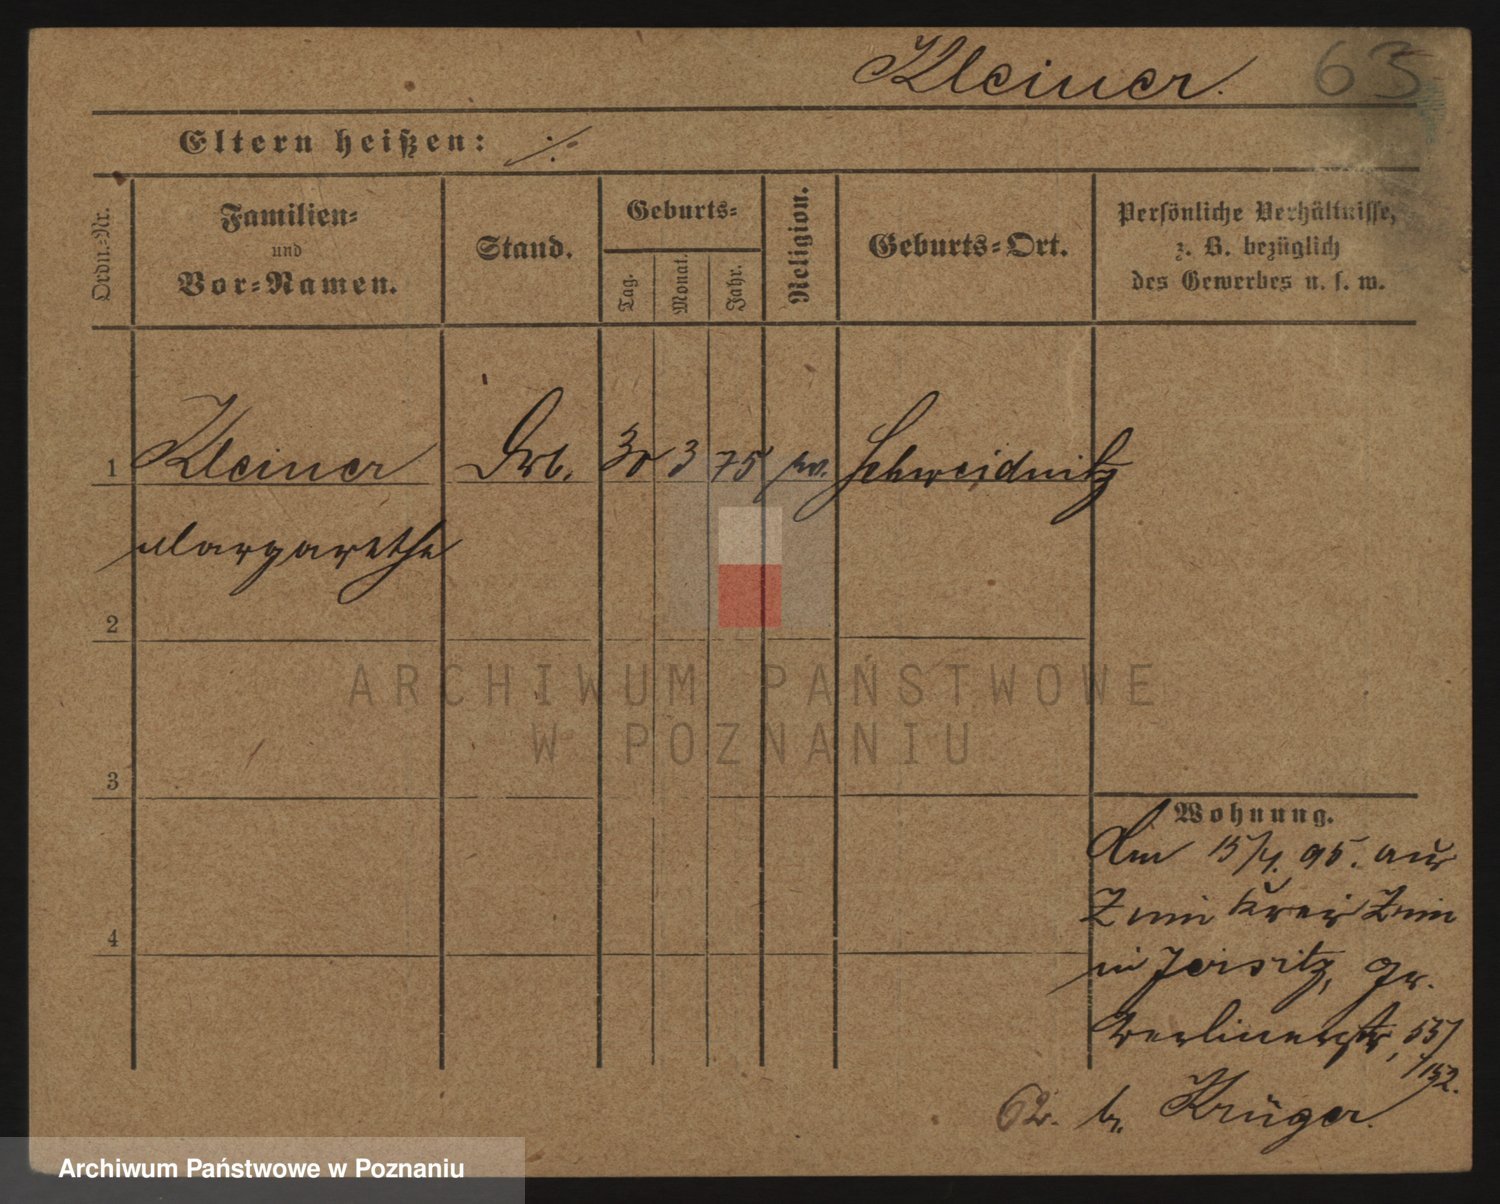 Kleiner. 63
Eltern heißen: ./.
Ordn.-Nr.
Familien-
und
Vor-Namen.
Stand.
Geburts-
Tag.
Monat.
Jahr.
Religion.
Geburts-Ort.
Persönliche Verhältnisse,
z. B. bezüglich
des Gewerbes u. s. w.
1 Kleiner Arb. 30 3 75 Schweidnitz
Margarethe
2
3
4
Wohnung.
Am 15/4. 95. aus
Znin Kreis Znin
in Jersitz, Gr.
Berlinerstr, 55/
152.
b. Krüger.
ARCHIWUM PAŃSTWOWE
W POZNANIU
Archiwum Państwowe w Poznaniu